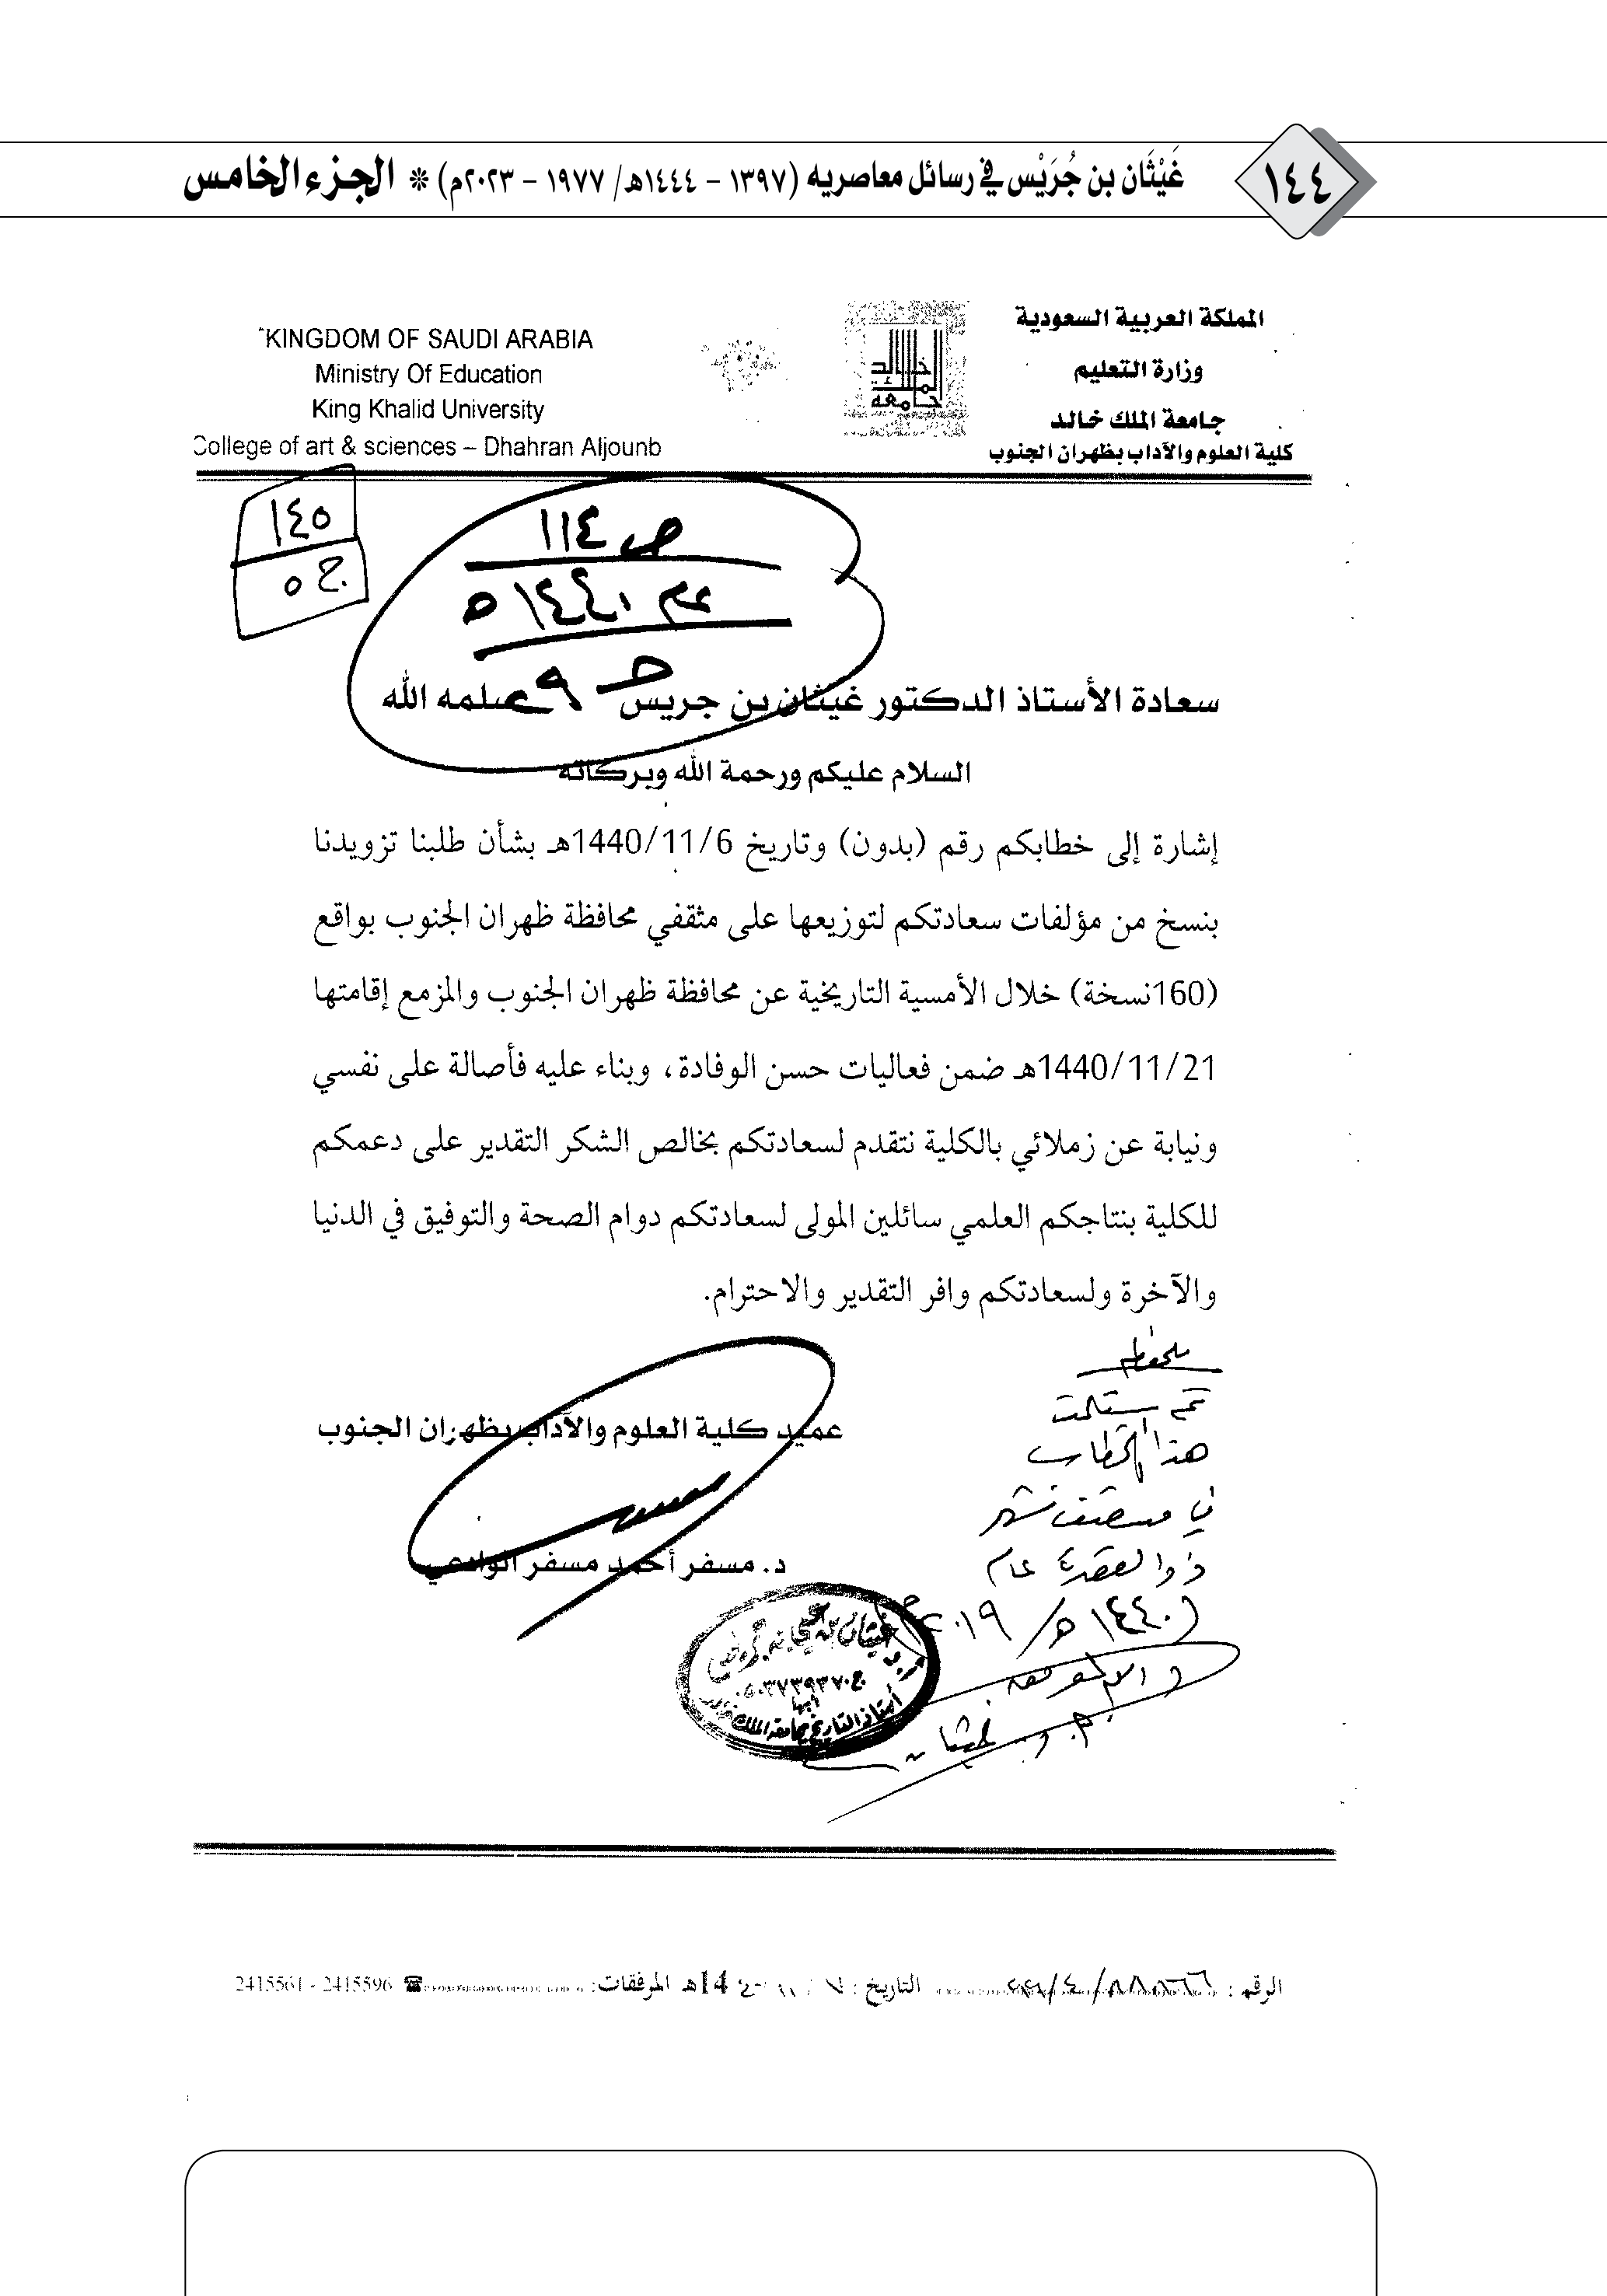 ١٤٤
غَيْثَان بن جُرَيْس في رسائل معاصريه (١٣٩٧ - ١٤٤٤هـ/ ١٩٧٧ - ٢٠٢٣م) * الجزء الخامس
المملكة العربية السعودية
وزارة التعليم
جامعة الملك خالد
كلية العلوم والآداب بظهران الجنوب
جامعة الملك خالد
KINGDOM OF SAUDI ARABIA
Ministry Of Education
King Khalid University
College of art & sciences – Dhahran Aljounb
ص ١١٤
عام ١٤٤٠ هـ
١٤٥
ج ٥
سعادة الأستاذ الدكتور غيثان بن جريس سلمه الله
السلام عليكم ورحمة الله وبركاته
إشارة إلى خطابكم رقم (بدون) وتاريخ 1440/11/6هـ بشأن طلبنا تزويدنا
بنسخ من مؤلفات سعادتكم لتوزيعها على مثقفي محافظة ظهران الجنوب بواقع
(160نسخة) خلال الأمسية التاريخية عن محافظة ظهران الجنوب والمزمع إقامتها
1440/11/21هـ ضمن فعاليات حسن الوفادة، وبناء عليه فأصالة على نفسي
ونيابة عن زملائي بالكلية نتقدم لسعادتكم بخالص الشكر التقدير على دعمكم
للكلية بنتاجكم العلمي سائلين المولى لسعادتكم دوام الصحة والتوفيق في الدنيا
والآخرة ولسعادتكم وافر التقدير والاحترام.
عميد كلية العلوم والآداب بظهران الجنوب
د. مسفر أحمد مسفر الوادعي
هذا الخطاب
في منتصف شهر
ذو القعدة عام
(١٤٤٠هـ/٢٠١٩م)
أ.د. غيثان
أستاذ التاريخ بجامعة الملك خالد
أبها
الرقم : التاريخ : 14هـ المرفقات: ☎ 2415596 - 2415561